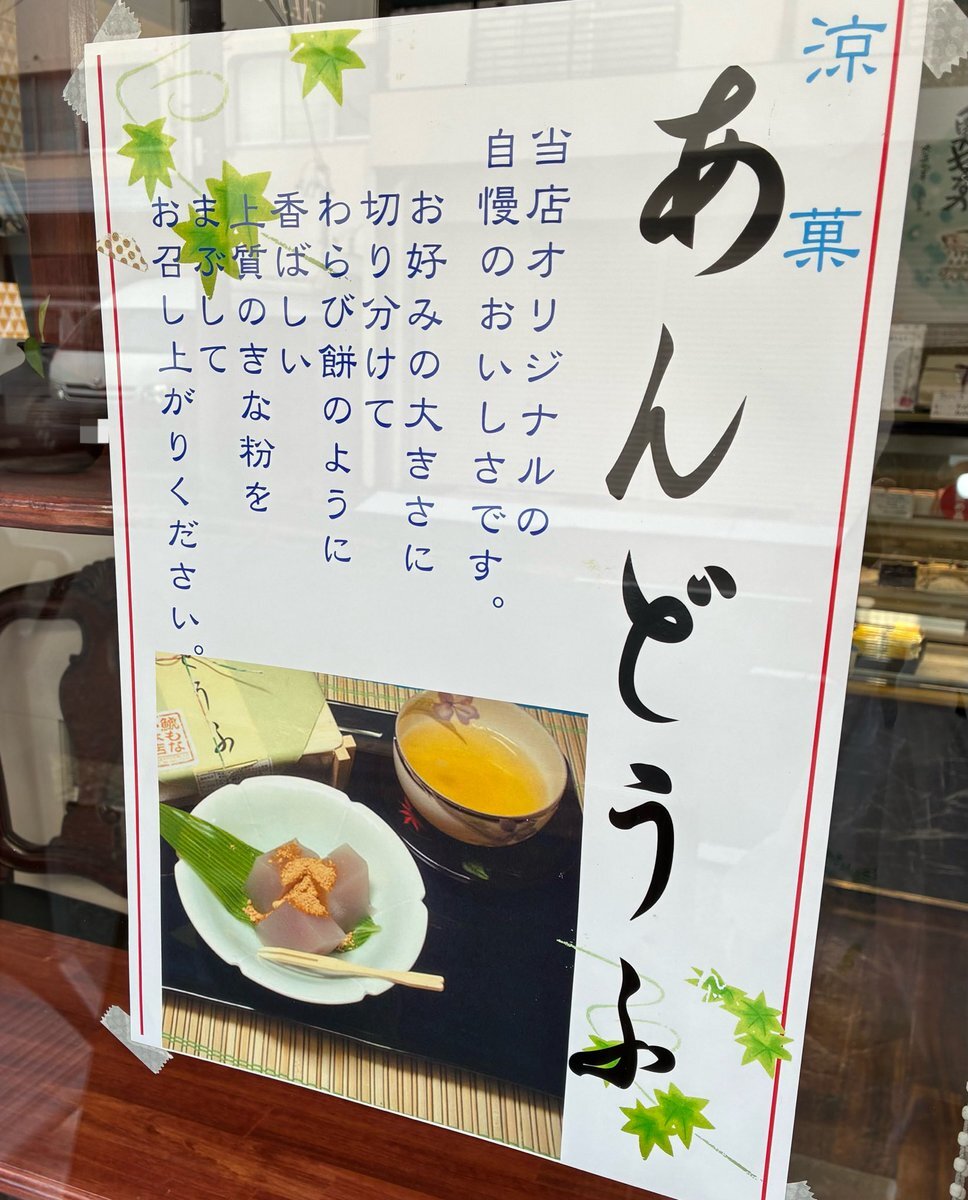 涼菓
あんどうふ
当店オリジナルの
自慢のおいしさです。
お好みの大きさに
切り分けて
わらび餅のように
香ばしい
上質のきな粉を
まぶして
お召し上がりください。
うふ